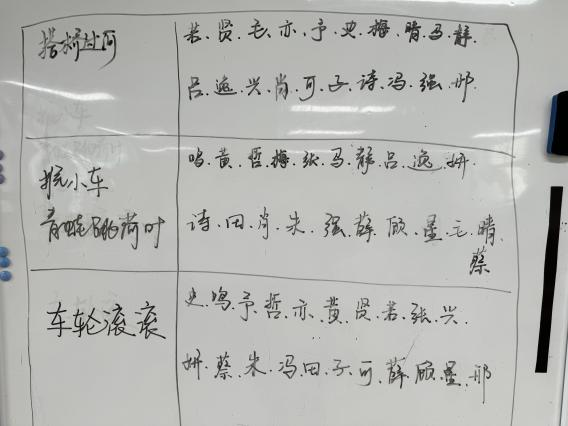 搭桥过河
若、贤、毛、亦、予、史、梅、晴、马、静、
吕、逸、兴、肖、可、子、诗、冯、强、那、
推小车
青蛙跳荷叶
鸣、黄、哲、梅、张、马、静、吕、逸、妍、
诗、田、肖、朱、强、薛、顾、星、毛、晴、
蔡
车轮滚滚
史、鸣、予、哲、亦、黄、贤、若、张、兴、
妍、蔡、朱、冯、田、子、可、薛、顾、星、那